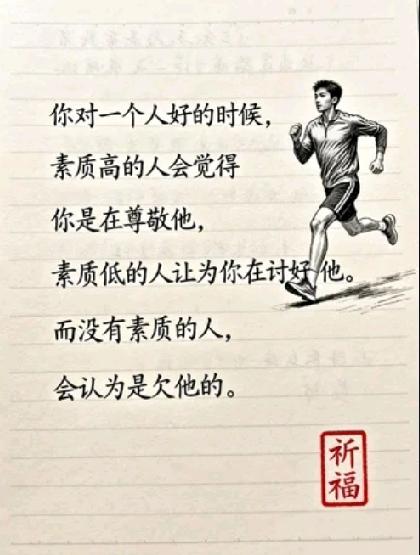 你对一个人好的时候，
素质高的人会觉得
你是在尊敬他，
素质低的人让为你在讨好他。
而没有素质的人，
会认为是欠他的。
祈福